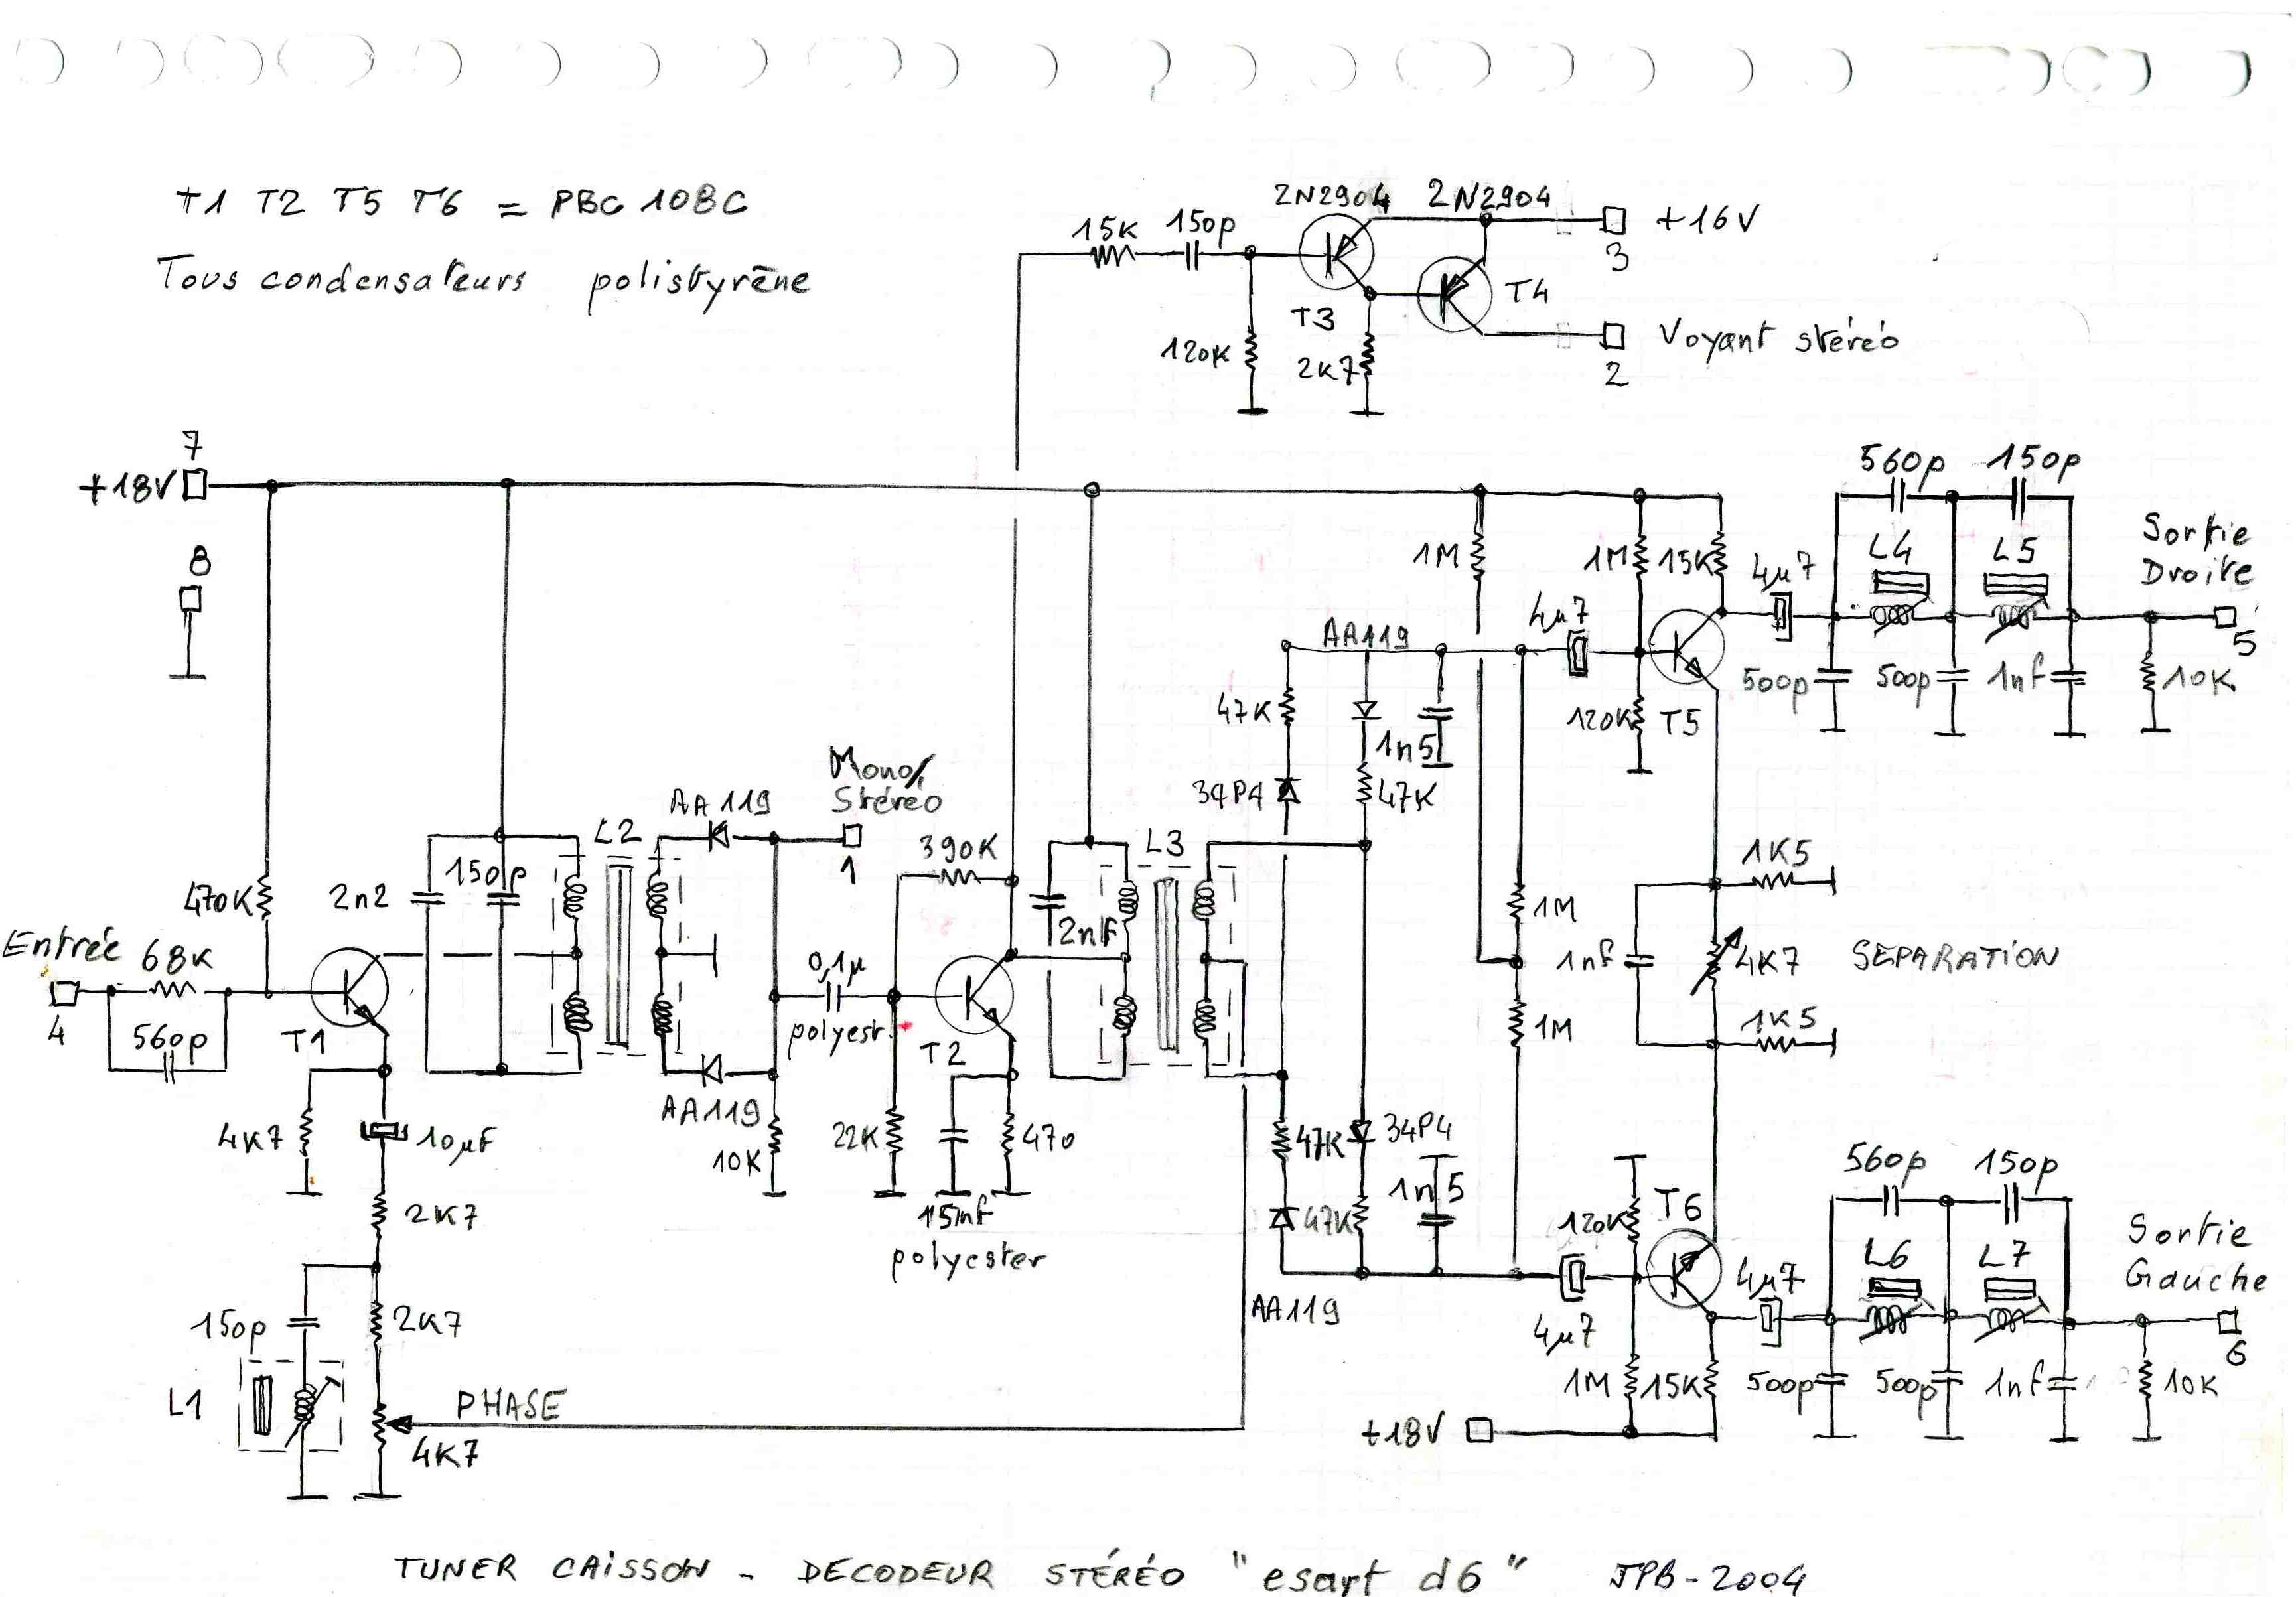 T1 T2 T5 T6 = PBC 108C
Tous condensateurs polistyrène
2N2904 2N2904
15K 150p
+16V
3
T4
T3
120K
2K7
Voyant stéréo
2
7
+18V
8
560p 150p
L4 L5
Sortie
Droite
1M
1M 15K
4µ7
4µ7
5
AA119
500p 500p 1nf 10K
47K
120K T5
1n5
34P4 47K
Mono/
Stéréo
AA119
L2
1
390K
L3
470K
2n2 150p
2nF
1K5
1M
Entrée
68K
4
560p
T1
0,1µ
polyest.
T2
1nf
4K7
SEPARATION
1M
1K5
AA119
4K7
10µF
10K
22K
470
15nf
polyester
47K 34P4
1n5
47K
AA119
2K7
560p 150p
120K T6
L6 L7
Sortie
Gauche
4µ7
4µ7
6
150p
2K7
L1
PHASE
4K7
1M 15K
500p 500p 1nf 10K
+18V
TUNER CAiSSON - DECODEUR STÉRÉO "esart d6" JPB-2004